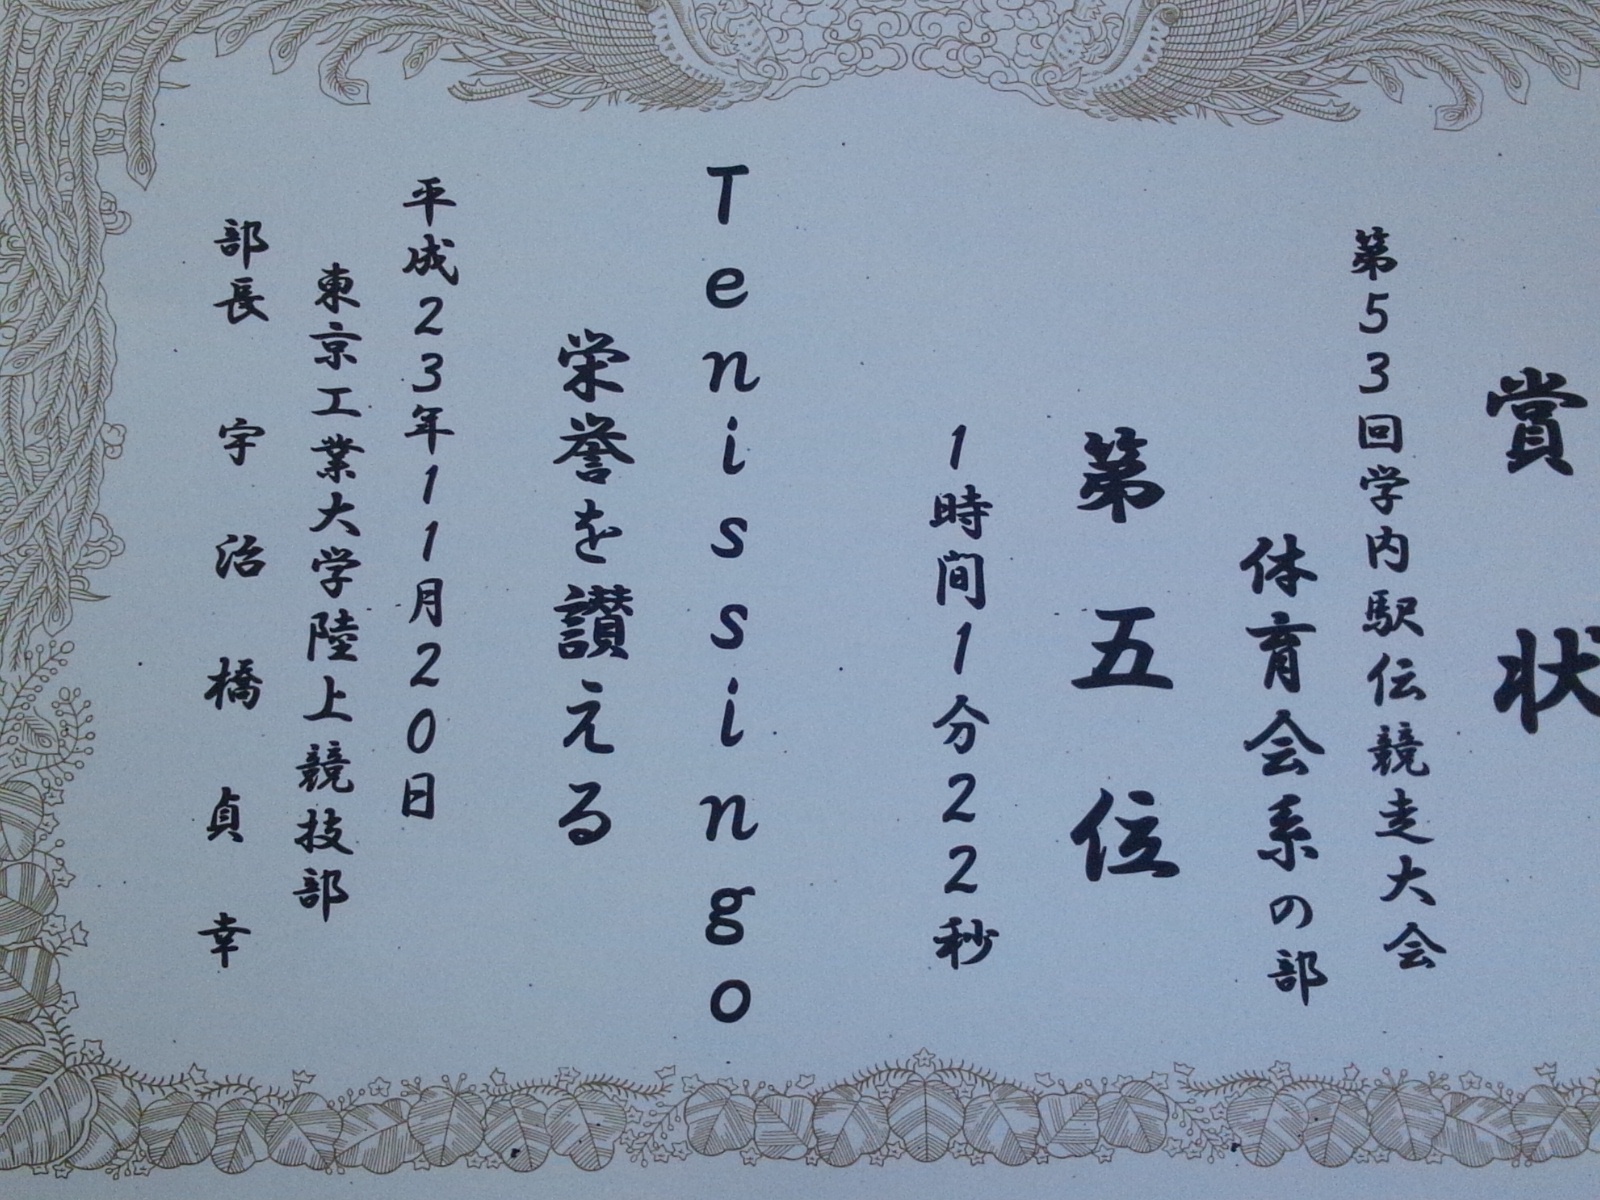 賞状
第53回学内駅伝競走大会
体育会系の部
第五位
1時間1分22秒
Tenissingo
栄誉を讃える
平成23年11月20日
東京工業大学陸上競技部
部長 宇治橋貞幸